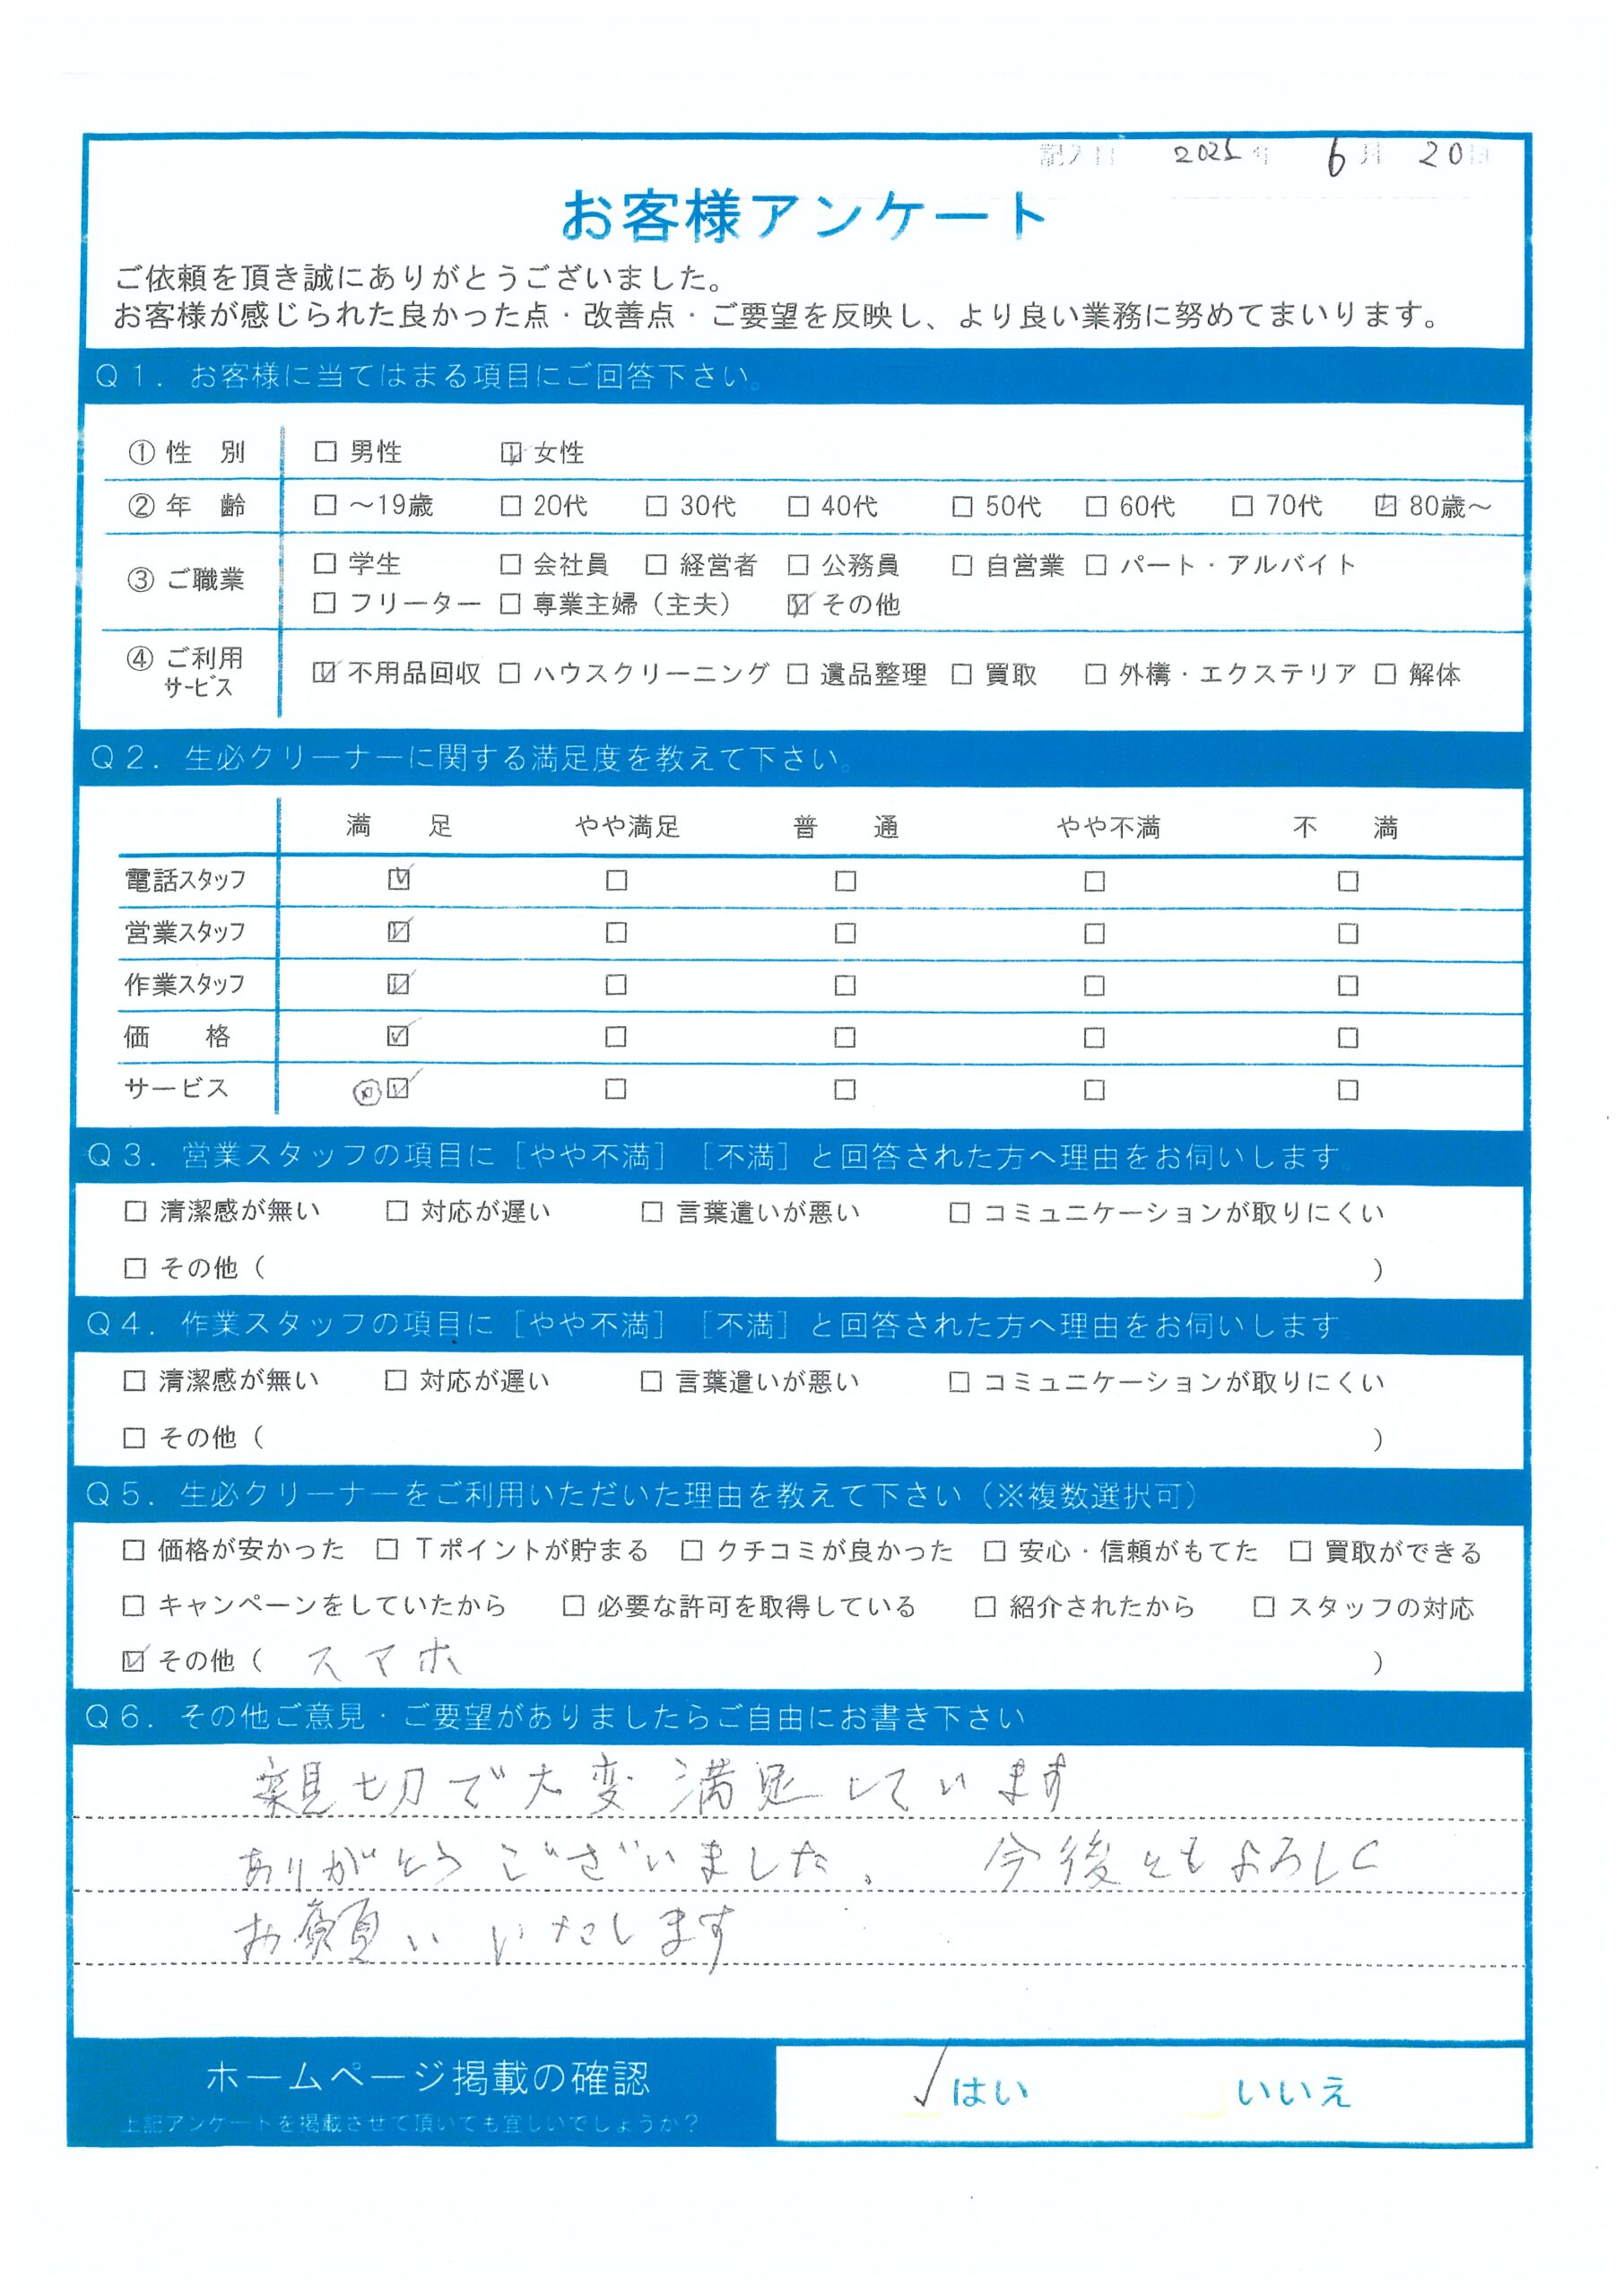 記入日 2025年 6月 20日
お客様アンケート
ご依頼を頂き誠にありがとうございました。
お客様が感じられた良かった点・改善点・ご要望を反映し、より良い業務に努めてまいります。
Q1. お客様に当てはまる項目にご回答下さい。
①性 別 □ 男性 ☑ 女性
②年 齢 □ ～19歳 □ 20代 □ 30代 □ 40代 □ 50代 □ 60代 □ 70代 ☑ 80歳～
③ご職業 □ 学生 □ 会社員 □ 経営者 □ 公務員 □ 自営業 □ パート・アルバイト
□ フリーター □ 専業主婦（主夫） ☑ その他
④ご利用サービス ☑ 不用品回収 □ ハウスクリーニング □ 遺品整理 □ 買取 □ 外構・エクステリア □ 解体
Q2. 生必クリーナーに関する満足度を教えて下さい。
満 足 やや満足 普 通 やや不満 不 満
電話スタッフ ☑ □ □ □ □
営業スタッフ ☑ □ □ □ □
作業スタッフ ☑ □ □ □ □
価 格 ☑ □ □ □ □
サービス ☑ □ □ □ □
Q3. 営業スタッフの項目に［やや不満］［不満］と回答された方へ理由をお伺いします。
□ 清潔感が無い □ 対応が遅い □ 言葉遣いが悪い □ コミュニケーションが取りにくい
□ その他（ ）
Q4. 作業スタッフの項目に［やや不満］［不満］と回答された方へ理由をお伺いします
□ 清潔感が無い □ 対応が遅い □ 言葉遣いが悪い □ コミュニケーションが取りにくい
□ その他（ ）
Q5. 生必クリーナーをご利用いただいた理由を教えて下さい（※複数選択可）
□ 価格が安かった □ Tポイントが貯まる □ クチコミが良かった □ 安心・信頼がもてた □ 買取ができる
□ キャンペーンをしていたから □ 必要な許可を取得している □ 紹介されたから □ スタッフの対応
☑ その他（ スマホ ）
Q6. その他ご意見・ご要望がありましたらご自由にお書き下さい
親切で大変満足しています
ありがとうございました。 今後ともよろしく
お願い いたします
ホームページ掲載の確認 ✓はい いいえ
上記アンケートを掲載させて頂いても宜しいでしょうか？